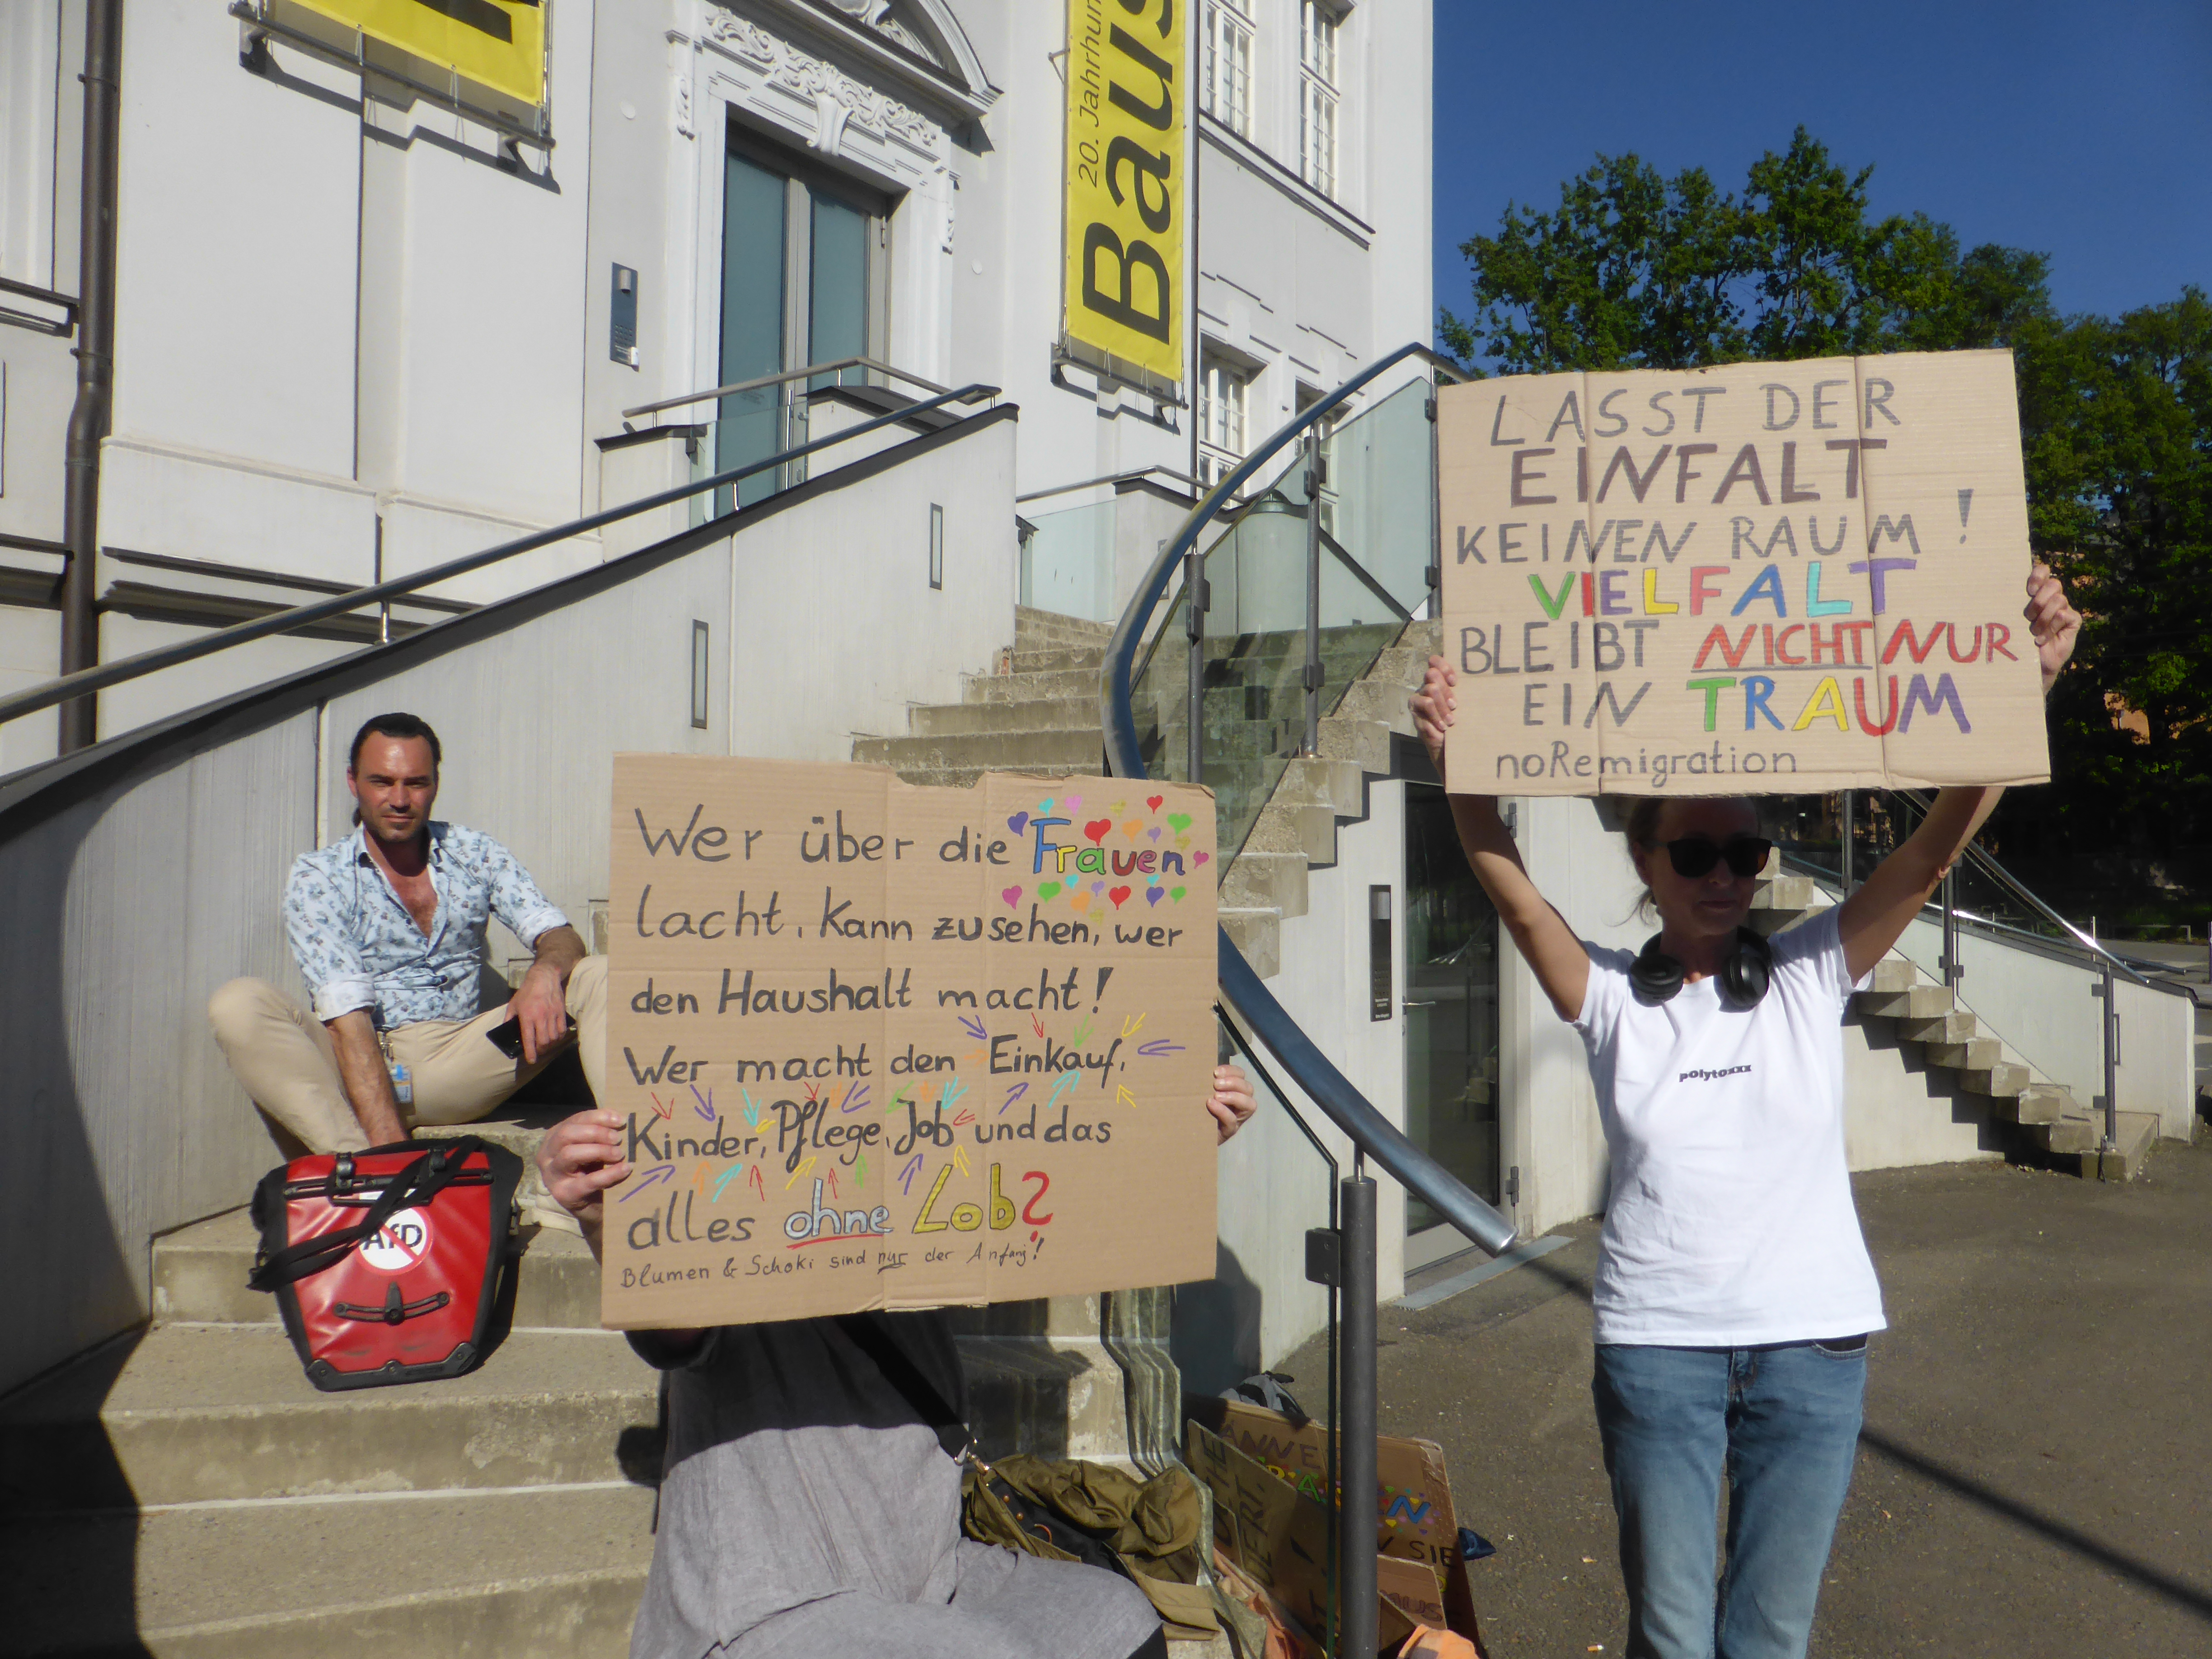 20. Jahrhun
Baus
LASST DER
EINFALT
KEINEN RAUM!
VIELFALT
BLEIBT NICHT NUR
EIN TRAUM
noRemigration
Wer über die Frauen
lacht, kann zusehen, wer
den Haushalt macht!
Wer macht den Einkauf,
Kinder, Pflege, Job und das
alles ohne Lob?
Blumen & Schoki sind nur der Anfang!
polytoxxx
AfD